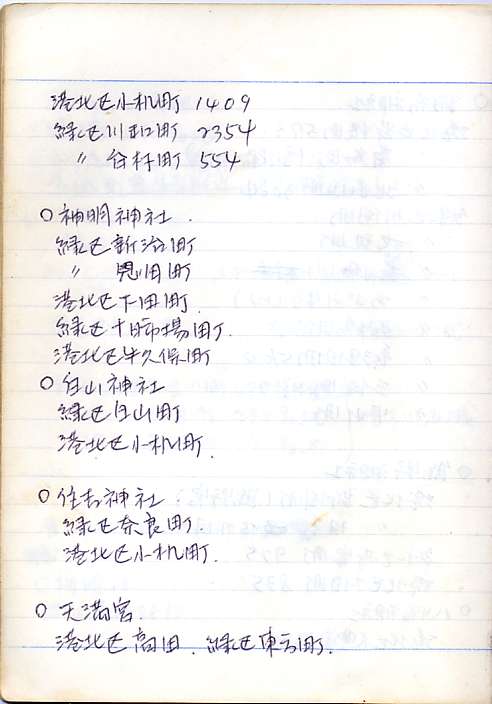 港北区小机町 1409
緑区川和町 2354
〃 台村町 554
○神明神社.
緑区新治町
〃 恩田町
港北区下田町.
緑区十日市場町.
港北区牛久保町
○白山神社
緑区白山町
港北区小机町.
○住吉神社
緑区奈良町
港北区小机町.
○天満宮.
港北区高田. 緑区東方町.